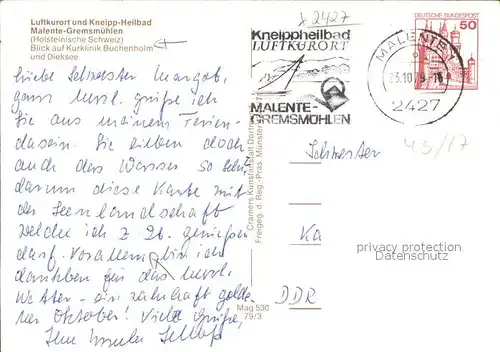 Luftkurort und Kneipp-Heilbad
Malente-Gremsmühlen
(Holsteinische Schweiz)
Blick auf Kurklinik Buchenholm
und Dieksee
x 2427
Kneippheilbad
LUFTKURORT
MALENTE-
GREMSMÜHLEN
MALENTE
23.10.79-18
2427
DEUTSCHE BUNDESPOST
50
43/17
Liebe Schwester Margot,
ganz herzl. grüße ich
Sie aus meinem Ferien-
dasein. Sie lieben doch
auch das Wasser so sehr
darum diese Karte mit
der Seenlandschaft
welche ich z Zt. genießen
darf. Vor allem bin ich
dankbar für das herrl.
Wetter - ein zauberhaft golde-
ner Oktober! Viele Grüße,
Ihre Ursula
Cramers Kunstanstalt Dortmund
Freigeg. d. Reg.-Präs. Münster
Mag 530
79/3
Schwester
Ka
DDR
privacy protection
Datenschutz